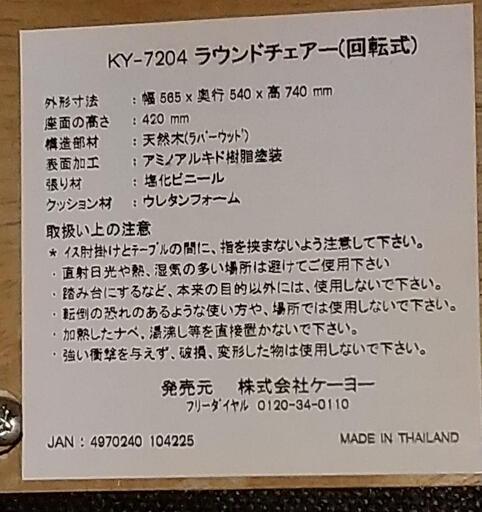 KY-7204 ラウンドチェアー(回転式)
外形寸法 : 幅 565 x 奥行 540 x 高 740 mm
座面の高さ : 420 mm
構造部材 : 天然木(ラバーウッド)
表面加工 : アミノアルキド樹脂塗装
張り材 : 塩化ビニール
クッション材 : ウレタンフォーム
取扱い上の注意
* イス肘掛けとテーブルの間に、指を挟まないよう注意して下さい。
・直射日光や熱、湿気の多い場所は避けてご使用下さい
・踏み台にするなど、本来の目的以外には、使用しないで下さい。
・転倒の恐れのあるような使い方や、場所では使用しないで下さい。
・加熱したナベ、湯沸し等を直接置かないで下さい。
・強い衝撃を与えず、破損、変形した物は使用しないで下さい。
発売元 株式会社ケーヨー
フリーダイヤル 0120-34-0110
JAN : 4970240 104225 MADE IN THAILAND